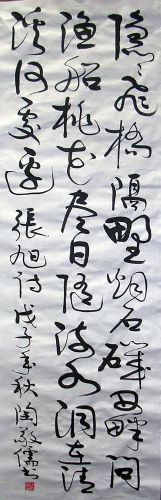 隐々飛橋隔野烟石磯西畔问
漁船桃花盡日随流水洞在清
溪何處邊 張旭诗 戊子年秋陶敬儒书